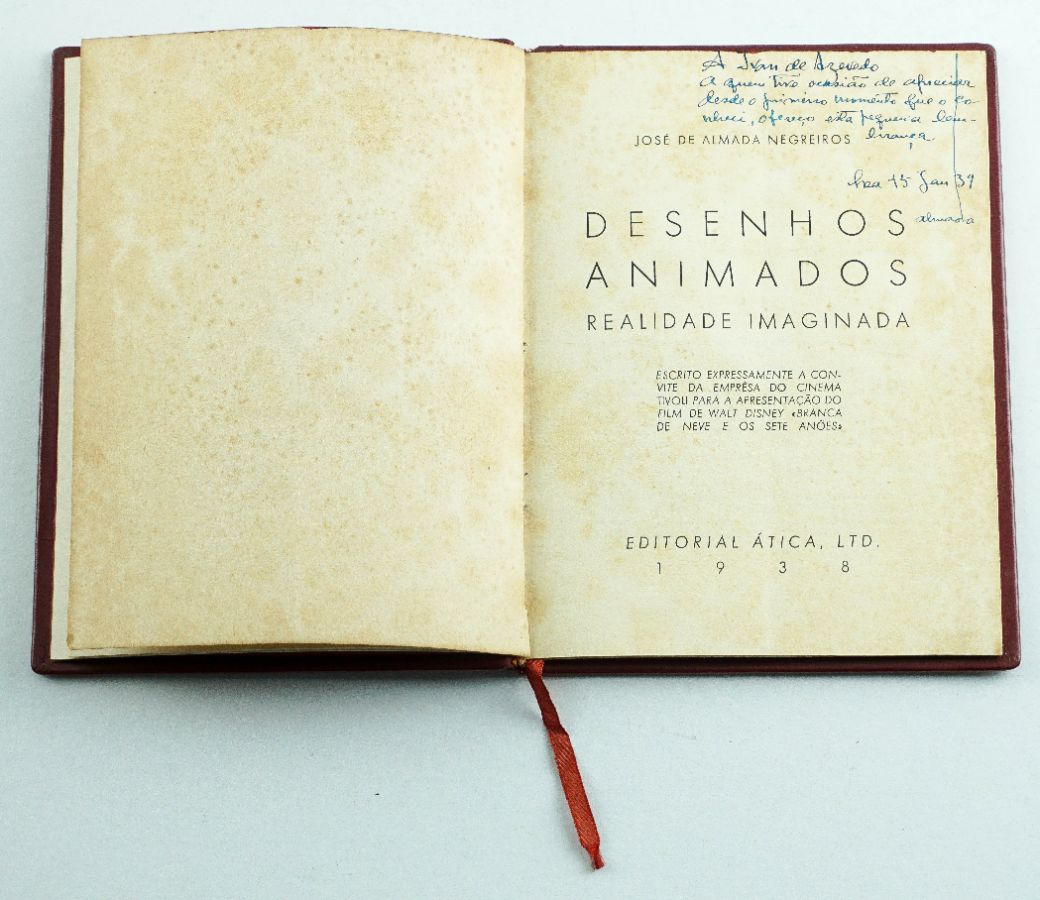 A Ivan de Azevedo
a quem tive ocasião de apreciar
desde o primeiro momento que o co-
nheci, ofereço esta pequena lem-
brança.
JOSÉ DE ALMADA NEGREIROS
15 Jan 39
almada
DESENHOS
ANIMADOS
REALIDADE IMAGINADA
ESCRITO EXPRESSAMENTE A CON-
VITE DA EMPRÊSA DO CINEMA
TIVOLI PARA A APRESENTAÇÃO DO
FILM DE WALT DISNEY «BRANCA
DE NEVE E OS SETE ANÕES»
EDITORIAL ÁTICA, LTD.
1938